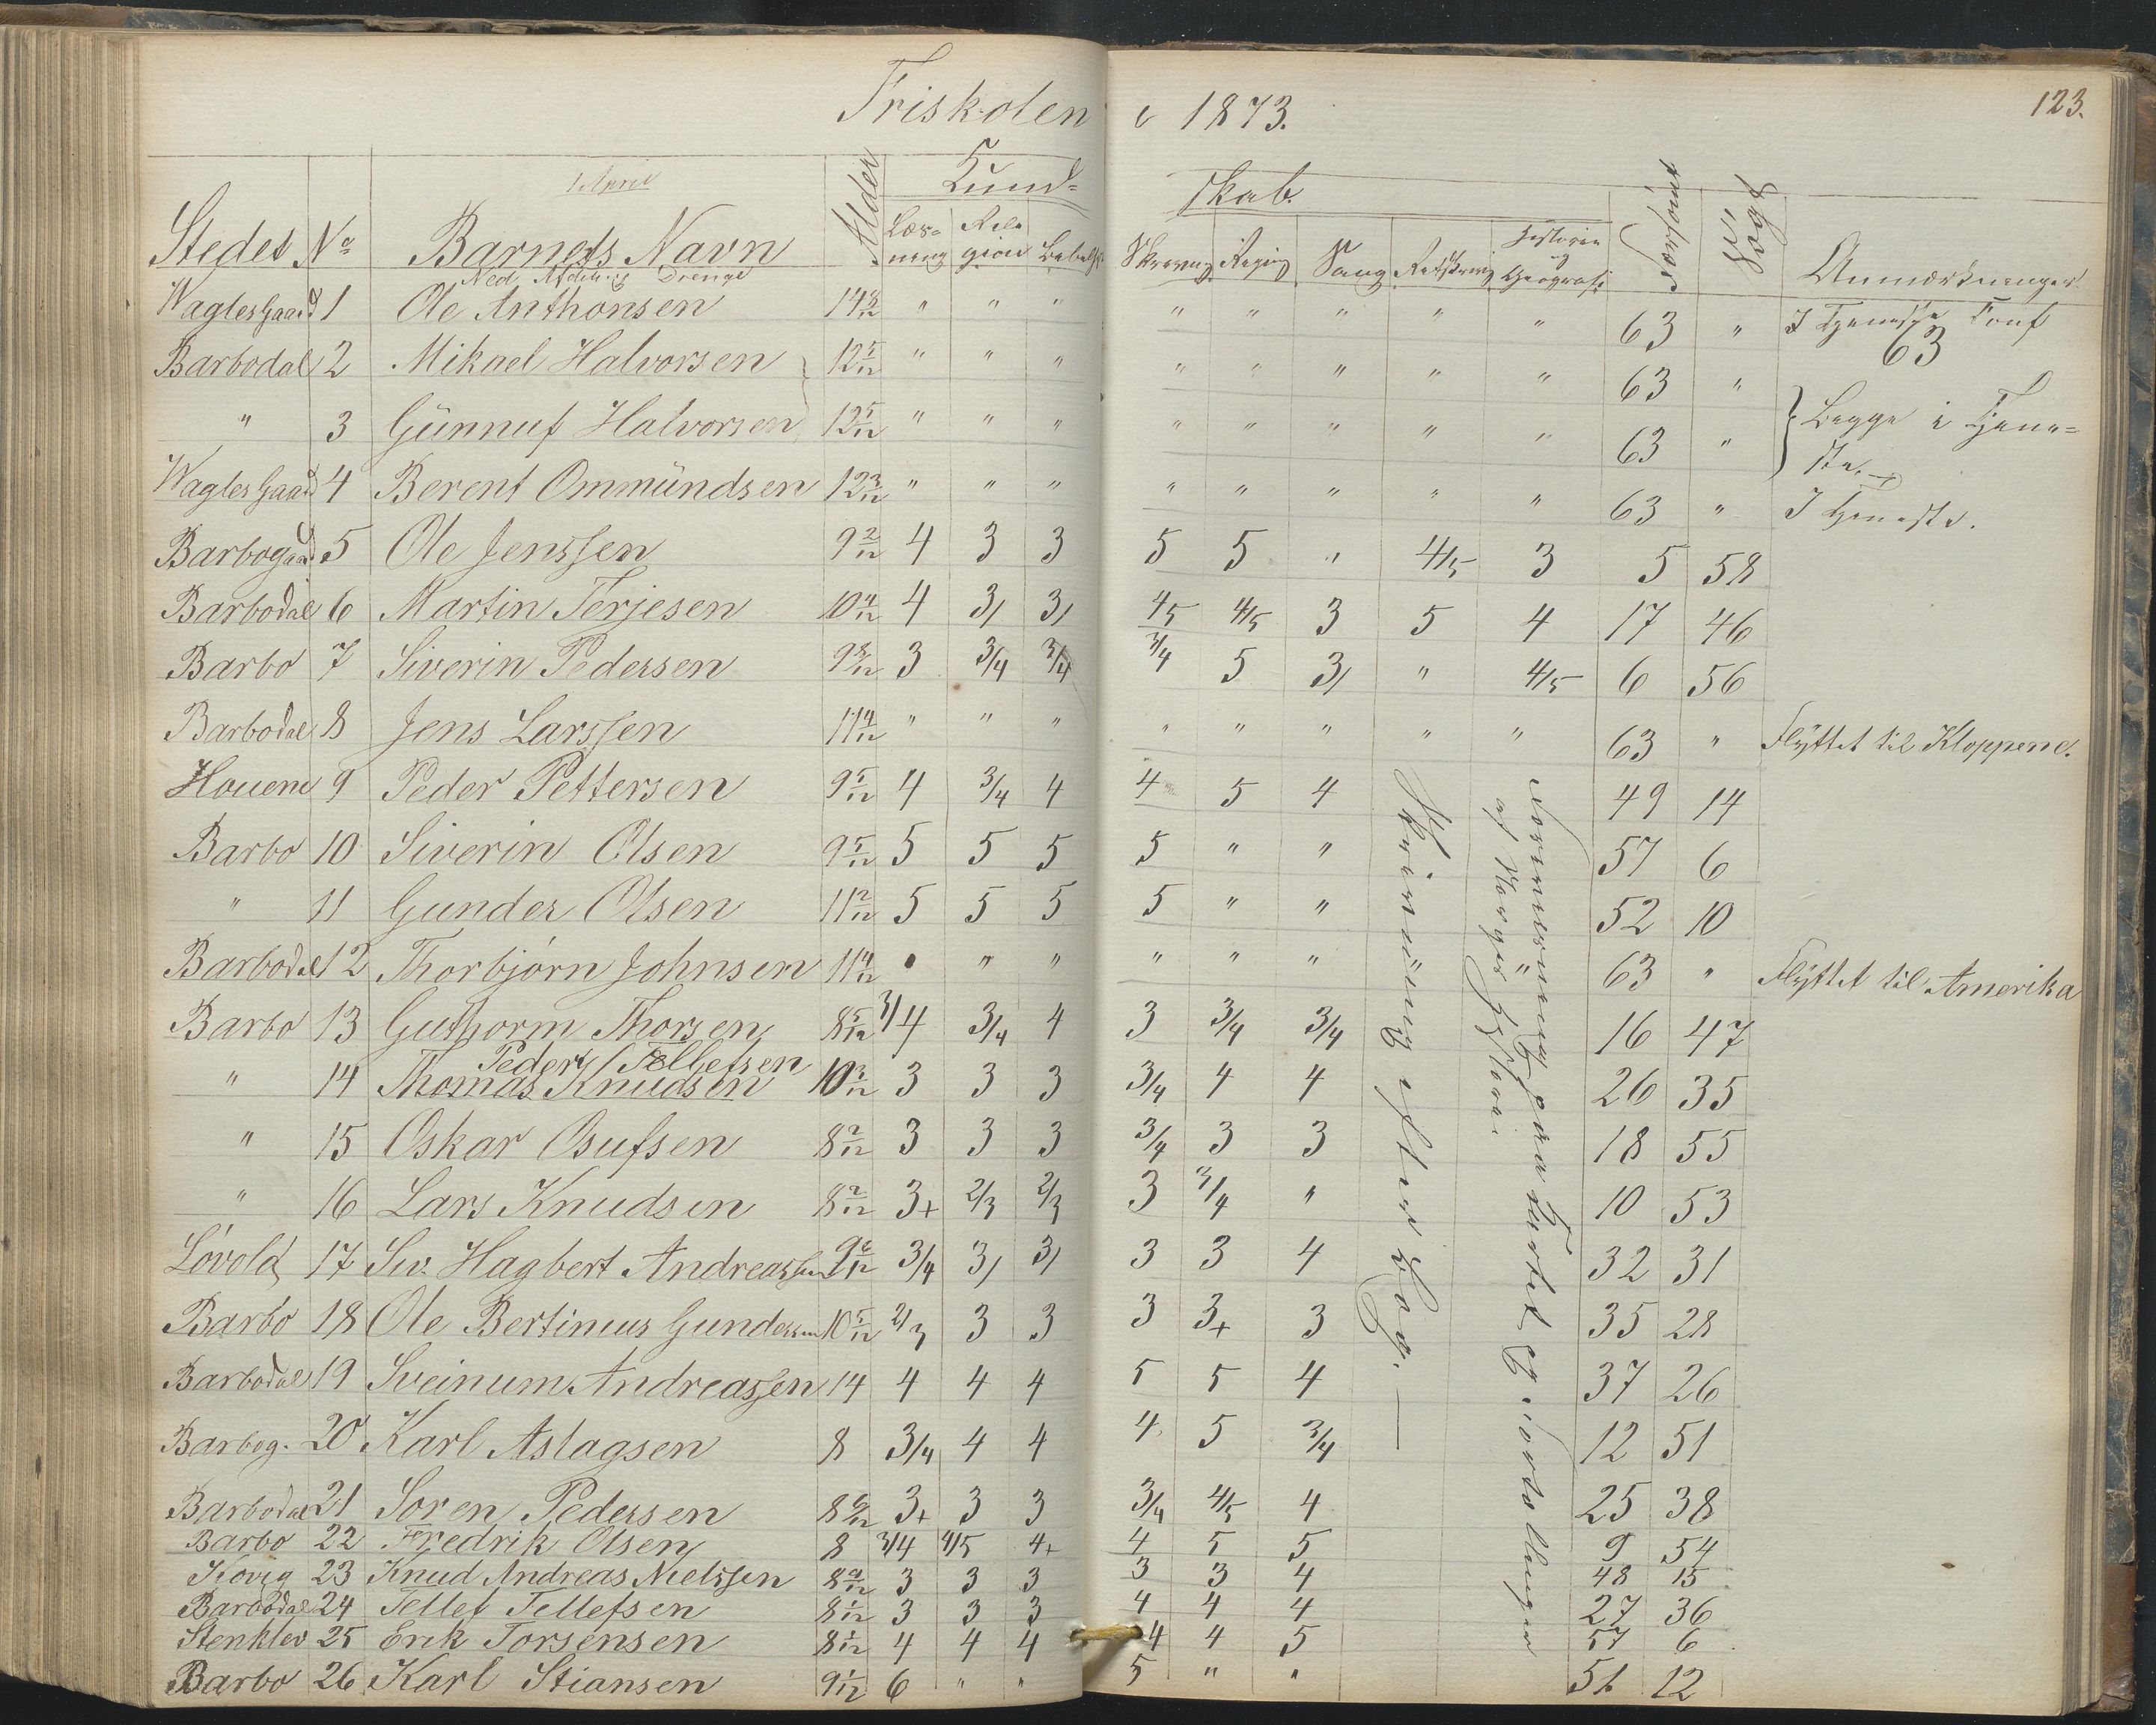 Friskolen i 1873.
123.
1 April
Kund- skab.
Stedet No Barnets Navn Alder Læsning Religion Bibelh Skrivning Regning Sang Retskrivn Historie og Geografi Forsømt Søgt Anmærkninger
Ned Afdeling Drenge
Wagles Gaard 1 Ole Anthonsen " " " " " " " " 63 " I Tjeneste Conf 63
Barbodal 2 Mikael Halvorsen 12 5/12 " " " " " " " " 63 "
" 3 Günnuf Halvorsen 12 5/12 " " " " " " " " 63 " } Begge i Tjeneste.
Wagles Gaard 4 Berent Ommündsen 12 3/12 " " " " " " " " 63 " I Tjeneste.
Barbogaard 5 Ole Jenssen 9 2/12 4 3 3 5 5 " 4/5 3 5 58
Barbodal 6 Martin Terjesen 10 4/12 4 3/ 3/ 4/5 4/5 3 5 4 17 46
Barbo 7 Siverin Pedersen 9 8/12 3 3/4 3/4 3/4 5 3/ " 4/5 6 56
Barbodal 8 Jens Larssen 11 4/12 " " " " " " " " 63 " Flÿttet til Kloppene.
Houene 9 Peder Pettersen 9 5/12 4 3/4 4 4 5 4 49 14
Barbo 10 Siverin Olsen 9 5/12 5 5 5 5 " " 57 6
" 11 Gunder Olsen 11 2/12 5 5 5 5 " " 52 10
Barbodal 12 Thorbjørn Johnsen 11 4/12 " " " " " " " 63 " Flÿttet til Amerika
Barbo 13 Guthorm Thorsen 8 5/12 3/4 3/4 4 3 3/4 3/4 16 47
Peder Tellefsen
" 14 Thomas Knudsen 10 3/12 3 3 3 3/4 4 4 26 35
" 15 Oskar Osufsen 8 2/12 3 3 3 3/4 3 3 18 55
" 16 Lars Knudsen 8 2/12 3+ 2/3 2/3 3 3/4 " 10 53
Løvold 17 Siv. Hagbert Andreassen 9 6/12 3/4 3/ 3/ 3 3 4 32 31
Barbo 18 Ole Bertinius Gundersen 10 5/12 2/3 3 3 3 3+ 3 35 28
Barbodal 19 Sveinum Andreassen 14 4 4 4 5 5 4 37 26
Barbog. 20 Karl Aslagsen 8 3/4 4 4 4 5 3/4 12 51
Barbodal 21 Soren Pedersen 8 6/12 3+ 3 3 3/4 4/5 4 25 38
Barbo 22 Fredrik Olsen 8 3/4 4/5 4+ 4 5 5 9 54
23 Knud Andreas Nielssen 8 9/12 3 3 3 3 3 4 48 15
Barbodal 24 Tellef Tellefsen 8 1/12 3 3 3 4 4 4 27 36
Stenklev 25 Erik Torsensen 8 1/12 4 4 4 4 4 5 57 6
Barbo 26 Karl Stiansen 9 1/12 6 " " 5 " " 51 12
Skrivning efter Bog. —
paa Kartet og Fortællinger
af Norges Historie